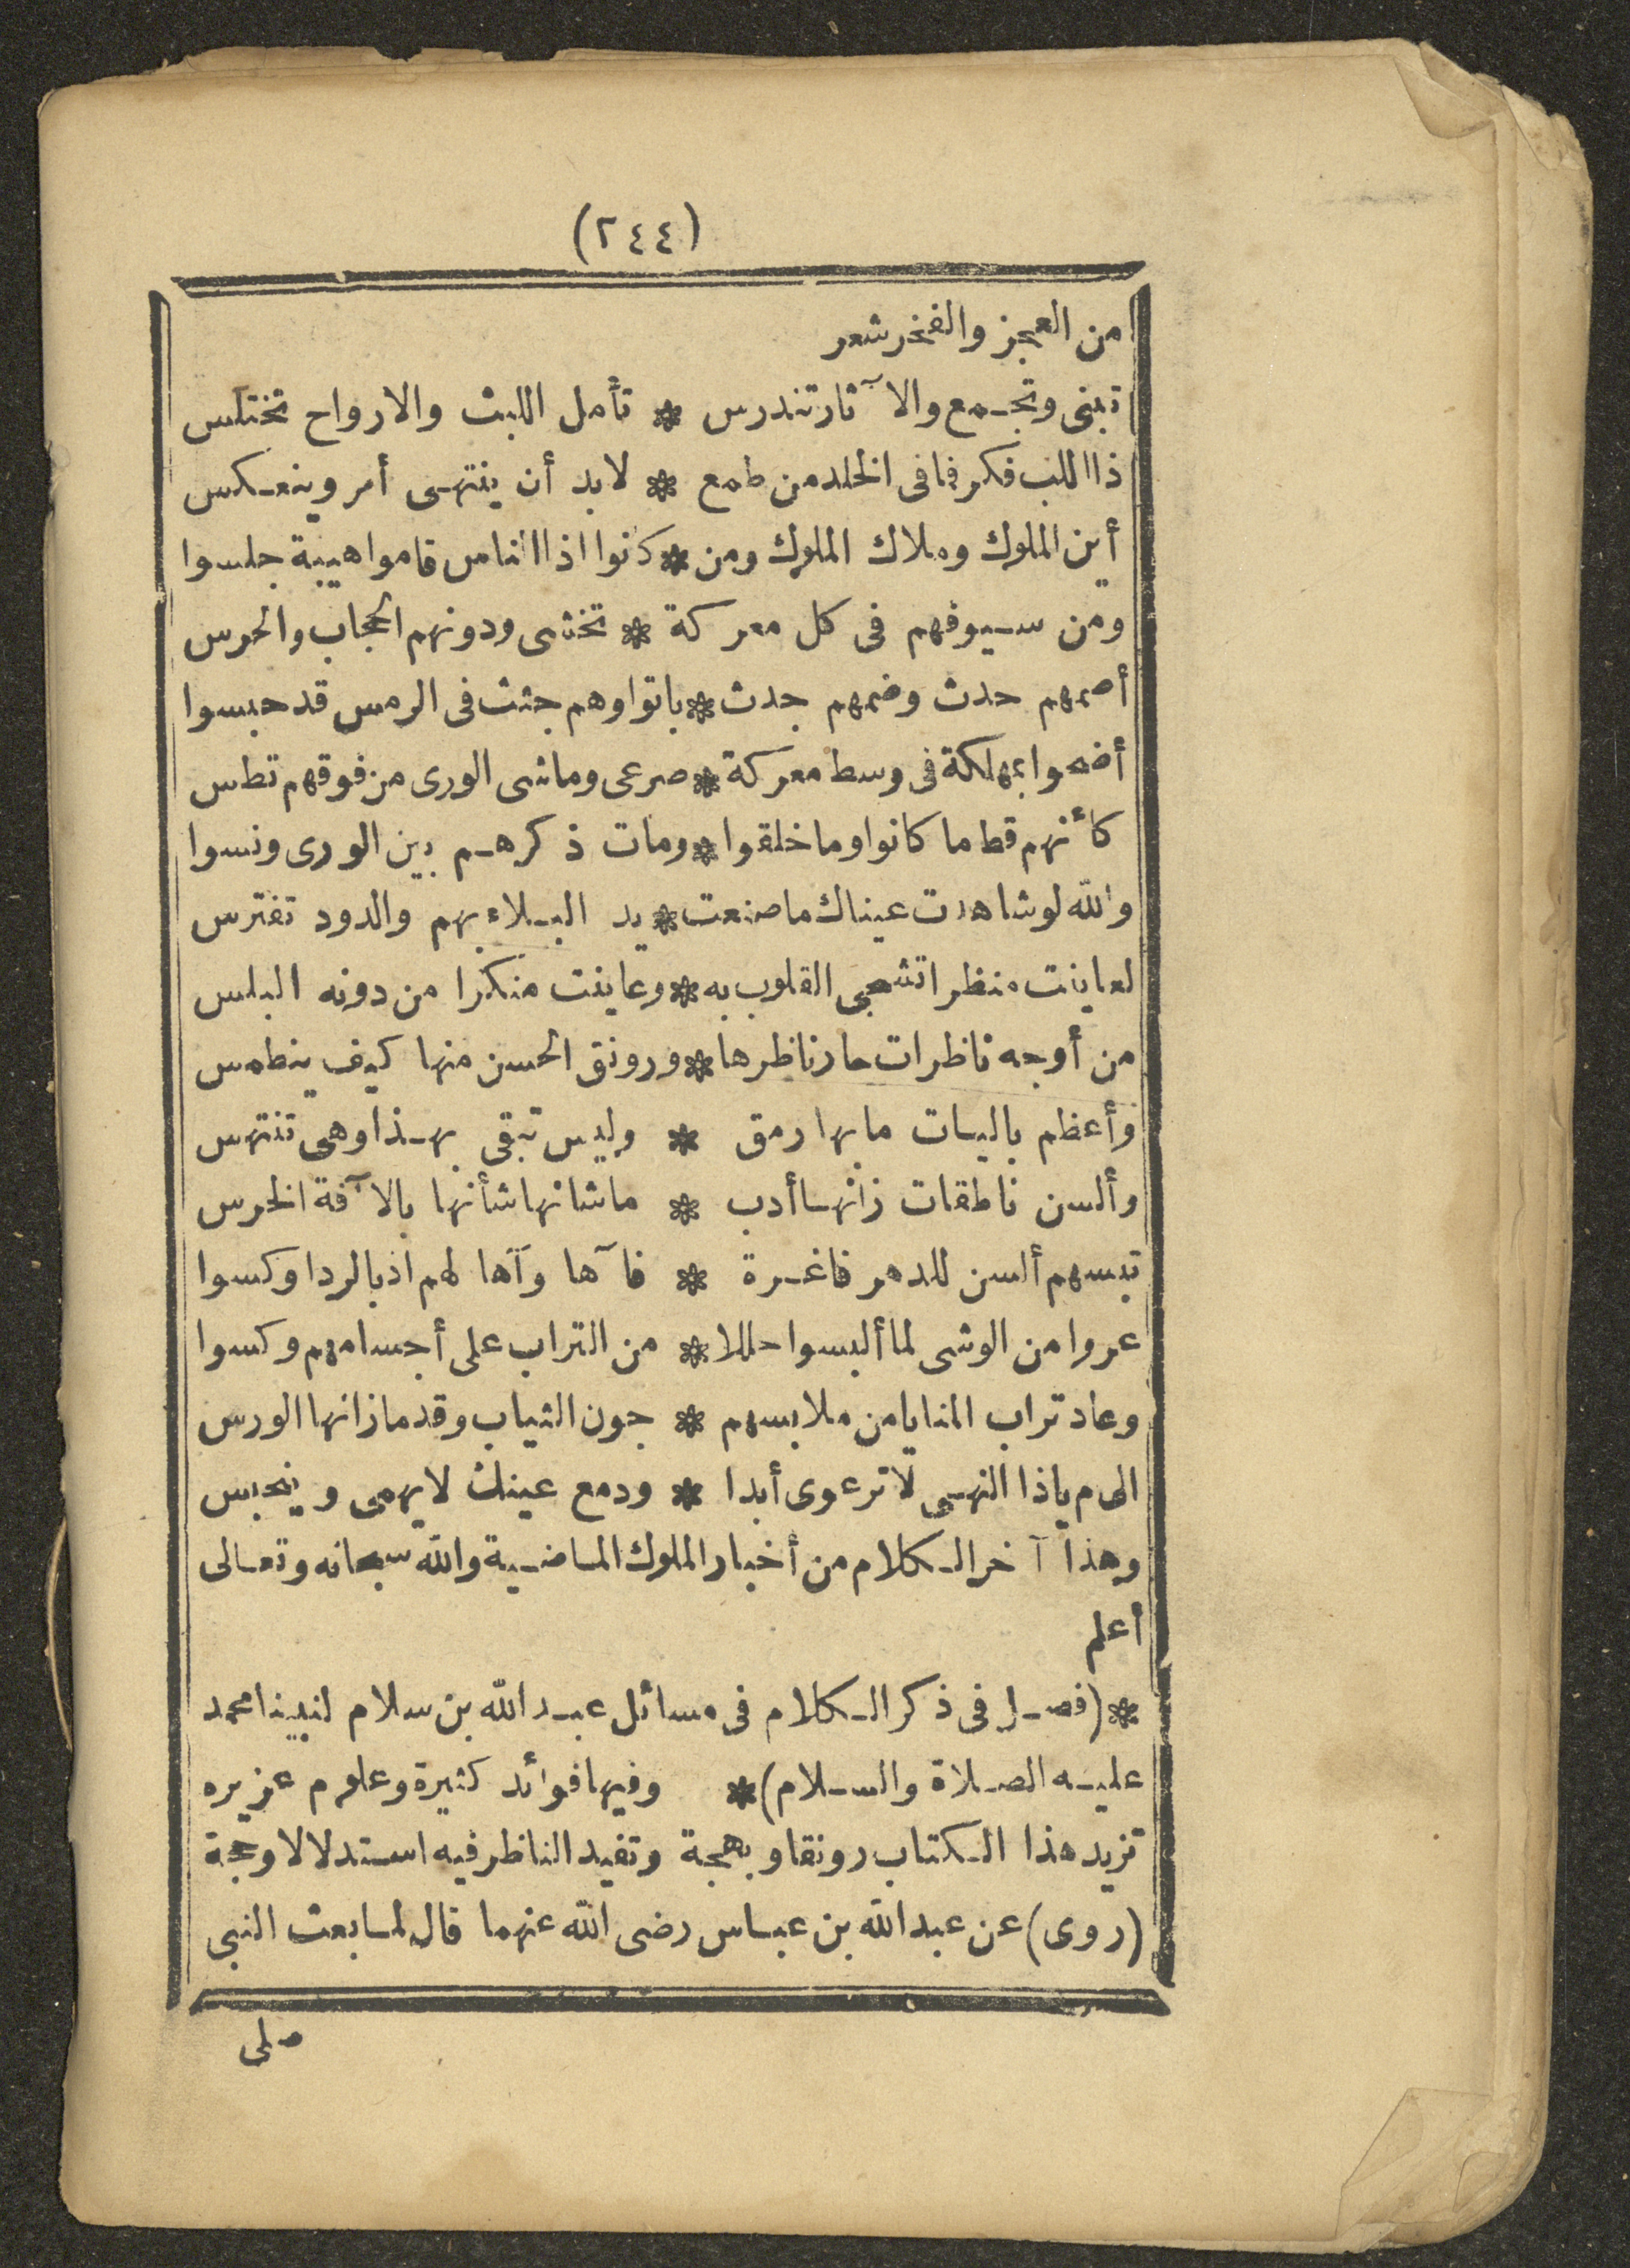 (٢٤٤)
من العجز والفخر شعر
تبنى وتجمع والآثار تندرس * تأمل اللبث والارواح تختلس
ذا اللب فكر فما فى الخلد من طمع * لابد أن ينتهى أمر وينعكس
أين الملوك وملاك الملوك ومن * كانوا اذا الناس قاموا هيبة جلسوا
ومن سيوفهم فى كل معركة * تخشى ودونهم الحجاب والحرس
أصمهم حدث وضمهم جدث * باتوا وهم جثث فى الرمس قد حبسوا
أضحوا بمهلكة فى وسط معركة * صرعى وماشى الورى من فوقهم تطس
كأنهم قط ما كانوا وما خلقوا * ومات ذكرهم بين الورى ونسوا
والله لو شاهدت عيناك ما صنعت * يد البلاء بهم والدود تفترس
لعاينت منظرا تشجى القلوب به * وعاينت منكرا من دونه البلس
من أوجه ناظرات حار ناظرها * ورونق الحسن منها كيف ينطمس
وأعظم باليات ما بها رمق * وليس تبقى بهذا وهى تنتهس
وألسن ناطقات زانها أدب * ما شانها شأنها بالآفة الخرس
تبسهم ألسن للدهر فاغرة * فآها وآها لهم اذ بالردا وكسوا
عروا من الوشى لما ألبسوا حللا * من التراب على أجسامهم وكسوا
وعاد تراب المنايا من ملابسهم * جون الثياب وقدما زانها الورس
الى م ياذا النهى لا ترعوى أبدا * ودمع عينك لا يهمى وينحبس
وهذا آخر الكلام من أخبار الملوك الماضية والله سبحانه وتعالى
أعلم
*(فصل فى ذكر الكلام فى مسائل عبد الله بن سلام لنبينا محمد
عليه الصلاة والسلام)* وفيها فوائد كثيرة وعلوم عزيره
تزيد هذا الكتاب رونقا وبهجة وتفيد الناظر فيه استدلالا وحجة
(روى) عن عبد الله بن عباس رضى الله عنهما قال لما بعث النبى
صلى